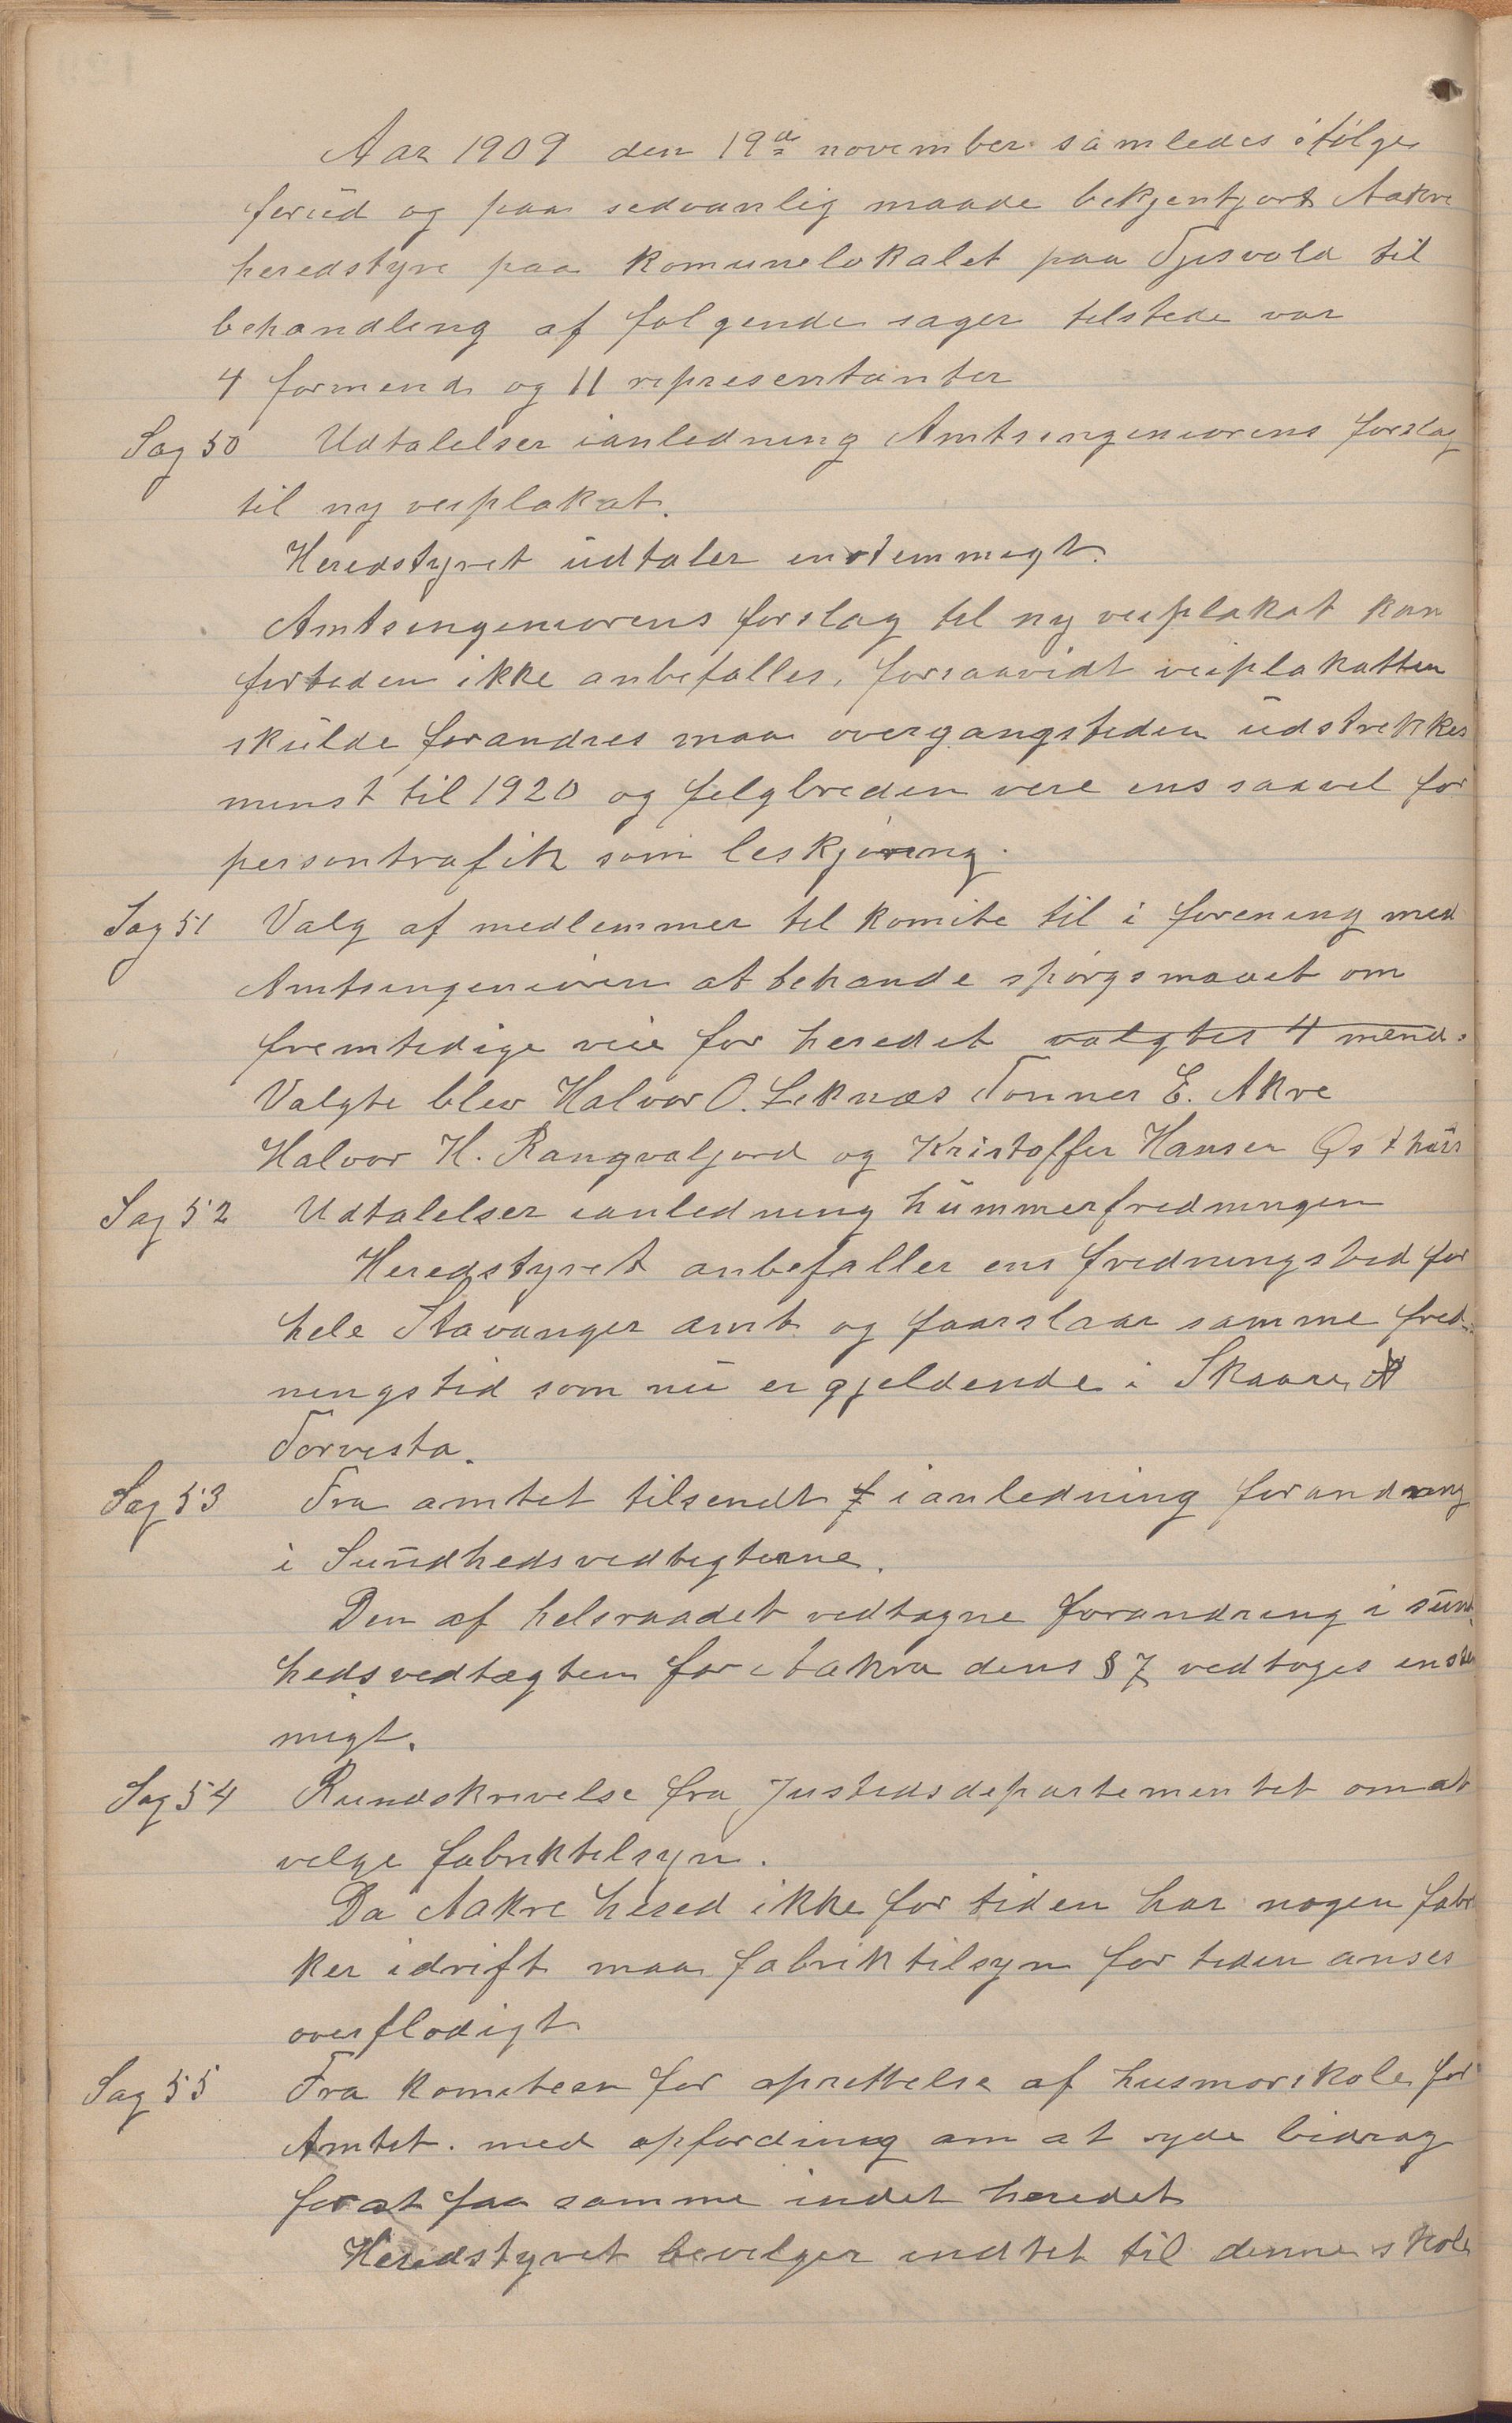 Aar 1909 den 19de november samledes ifölge
forud og paa sedvanlig maade bekjentgjort Aakre
heredstyre paa komunelokalet paa Tjøsvold til
behandling af folgende sager tilstede var
4 formend og 11 representanter
Sag 50 Udtalelser ianledning Amtsingeniorens forslag
til ny veiplakat.
Heredstyret udtaler enstemmigt.
Amtsingeniorens forslag til ny veiplakat kan
fortiden ikke anbefalles, forsaavidt veiplakatten
skulde forandres maa overgangstiden udstrekkes
minst til 1920 og felgbreden vere ens saavel for
persontrafik som leskjöring.
Sag 51 Valg af medlemmer til komite til i forening med
Amtsingeniören at behande spörgsmaaet om
fremtidige veie for heredet valgtes 4 mend.
Valgte blev Halvor O. Leknæs Tonnes E. Akre
Halvor H. Rangvaljord og Kristoffer Hansen Østhus
Sag 52 Udtalelser ianledning hummerfredningen
Heredstyret anbefaller ens fredningstid for
hele Stavanger amt og faarslaar samme fred-
ningstid som nu er gjeldende i Skaare &
Torvesta.
Sag 53 Fra amtet tilsendt f ianledning forandring
i Sundhedsvedtegterne.
Den af helsraadet vedtagne forandring i sund-
hedsvedtægten for Aakra dens § 7 vedtoges enstem
migt.
Sag 54 Rundskrivelse fra Justidsdepartementet om at
velge fabriktilsyn.
Da Aakre hered ikke for tiden har nogen fabri
ker idrift maa fabriktilsyn for tiden anses
overflodigt
Sag 55 Fra komiteen for oprettelse af husmorskole for
Amtet. med opfording om at yde bidrag
forat faa samme indet heredet
Heredstyret bevilger indtet til denne skole